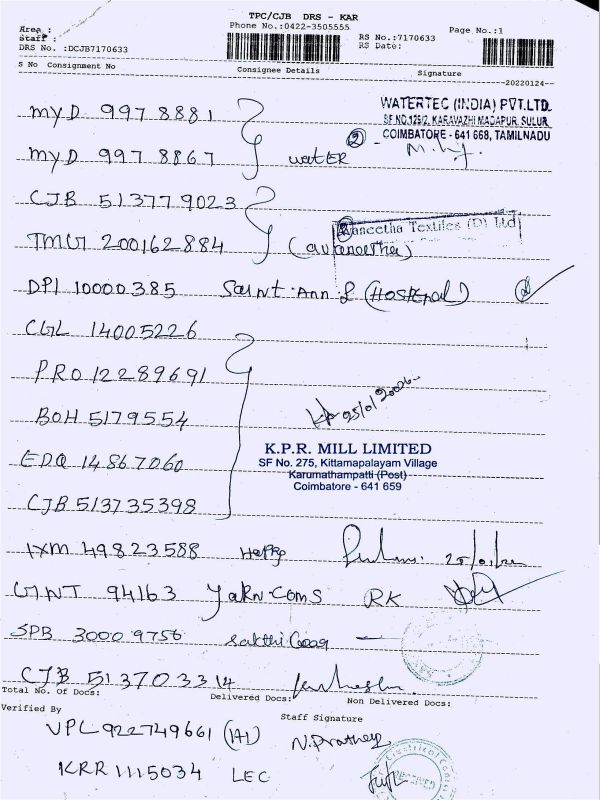 TPC/CJB DRS - KAR
Area :
Phone No.:0422-3505555
Page No.:1
Staff :
RS No.:7170633
DRS No. :DCJB7170633
RS Date:
S No Consignment No
Consignee Details
Signature
--20220124--
MYD 997 8881
WATERTEC (INDIA) PVT.LTD.
SF NO.126/2, KARAVAZHI MADAPUR, SULUR
COIMBATORE - 641 668, TAMILNADU
MYD 997 8867
water
CJB 513779023
TMG 200162884
Textiles (D) Ltd
DPI 10000385 Saint.Ann's (Hospital)
CGL 14005226
PRO 12289691
BOH 5179554
K.P.R. MILL LIMITED
SF No. 275, Kittamapalayam Village
Karumathampatti (Post)
Coimbatore - 641 659
EDQ 14867060
CJB 513735398
IXM 49823588
GNT 94163 Yarn coms RK
SPB 30009756 Sakthi
CJB 513703314
Total No. of Docs:
Delivered Docs:
Non Delivered Docs:
Verified By
Staff Signature
VPL 922749661
KRR 1115034 LEC
RECEIVED